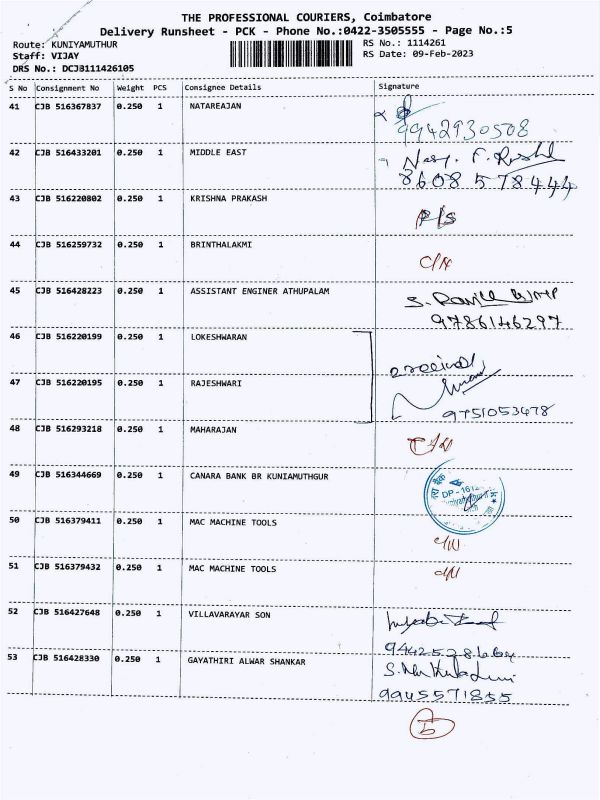 THE PROFESSIONAL COURIERS, Coimbatore
Delivery Runsheet - PCK - Phone No.:0422-3505555 - Page No.:5
Route: KUNIYAMUTHUR RS No.: 1114261
Staff: VIJAY RS Date: 09-Feb-2023
DRS No.: DCJB111426105
S No Consignment No Weight PCS Consignee Details Signature
41 CJB 516367837 0.250 1 NATAREAJAN
9942930508
42 CJB 516433201 0.250 1 MIDDLE EAST
8608578444
43 CJB 516220802 0.250 1 KRISHNA PRAKASH
P/S
44 CJB 516259732 0.250 1 BRINTHALAKMI
C/N
45 CJB 516428223 0.250 1 ASSISTANT ENGINER ATHUPALAM
9786146297
46 CJB 516220199 0.250 1 LOKESHWARAN
received
47 CJB 516220195 0.250 1 RAJESHWARI
9751053478
48 CJB 516293218 0.250 1 MAHARAJAN
49 CJB 516344669 0.250 1 CANARA BANK BR KUNIAMUTHGUR
50 CJB 516379411 0.250 1 MAC MACHINE TOOLS
51 CJB 516379432 0.250 1 MAC MACHINE TOOLS
52 CJB 516427648 0.250 1 VILLAVARAYAR SON
53 CJB 516428330 0.250 1 GAYATHIRI ALWAR SHANKAR
9945571855
5